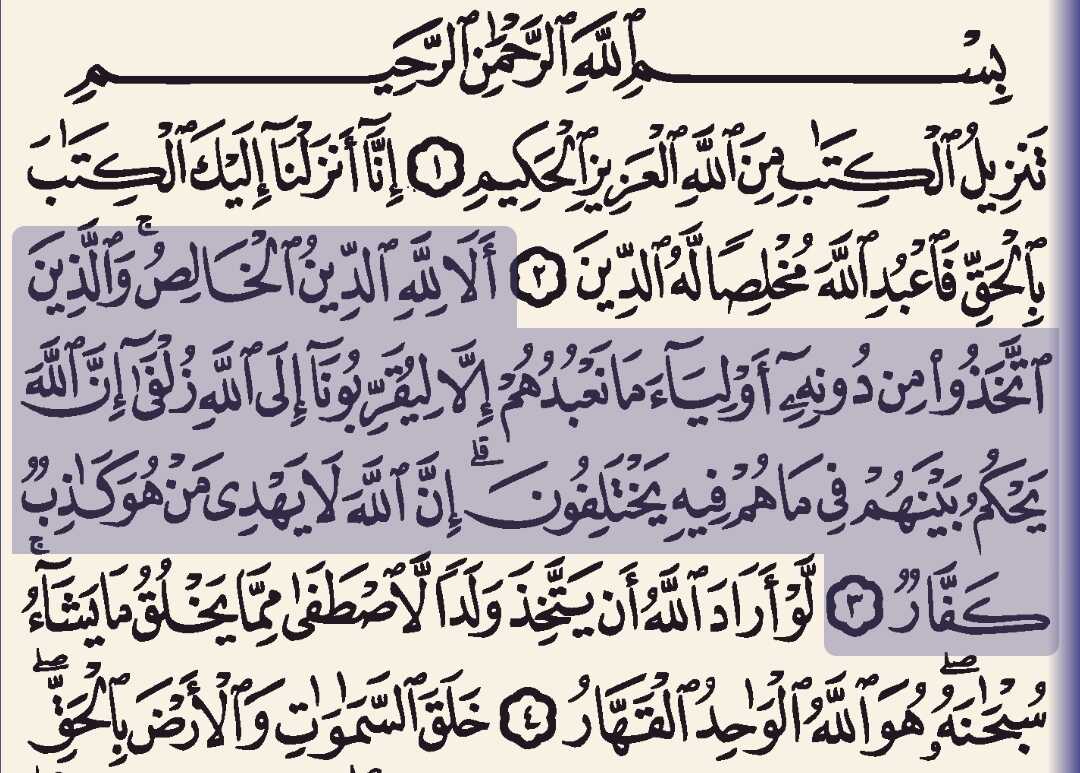 بِسْمِ ٱللَّهِ ٱلرَّحْمَٰنِ ٱلرَّحِيمِ
تَنزِيلُ ٱلْكِتَٰبِ مِنَ ٱللَّهِ ٱلْعَزِيزِ ٱلْحَكِيمِ ١ إِنَّآ أَنزَلْنَآ إِلَيْكَ ٱلْكِتَٰبَ
بِٱلْحَقِّ فَٱعْبُدِ ٱللَّهَ مُخْلِصًا لَّهُ ٱلدِّينَ ٢ أَلَا لِلَّهِ ٱلدِّينُ ٱلْخَالِصُ ۚ وَٱلَّذِينَ
ٱتَّخَذُوا۟ مِن دُونِهِۦٓ أَوْلِيَآءَ مَا نَعْبُدُهُمْ إِلَّا لِيُقَرِّبُونَآ إِلَى ٱللَّهِ زُلْفَىٰٓ إِنَّ ٱللَّهَ
يَحْكُمُ بَيْنَهُمْ فِى مَا هُمْ فِيهِ يَخْتَلِفُونَ ۗ إِنَّ ٱللَّهَ لَا يَهْدِى مَنْ هُوَ كَٰذِبٌ
كَفَّارٌ ٣ لَّوْ أَرَادَ ٱللَّهُ أَن يَتَّخِذَ وَلَدًا لَّٱصْطَفَىٰ مِمَّا يَخْلُقُ مَا يَشَآءُ ۚ
سُبْحَٰنَهُۥ ۖ هُوَ ٱللَّهُ ٱلْوَٰحِدُ ٱلْقَهَّارُ ٤ خَلَقَ ٱلسَّمَٰوَٰتِ وَٱلْأَرْضَ بِٱلْحَقِّ ۖ